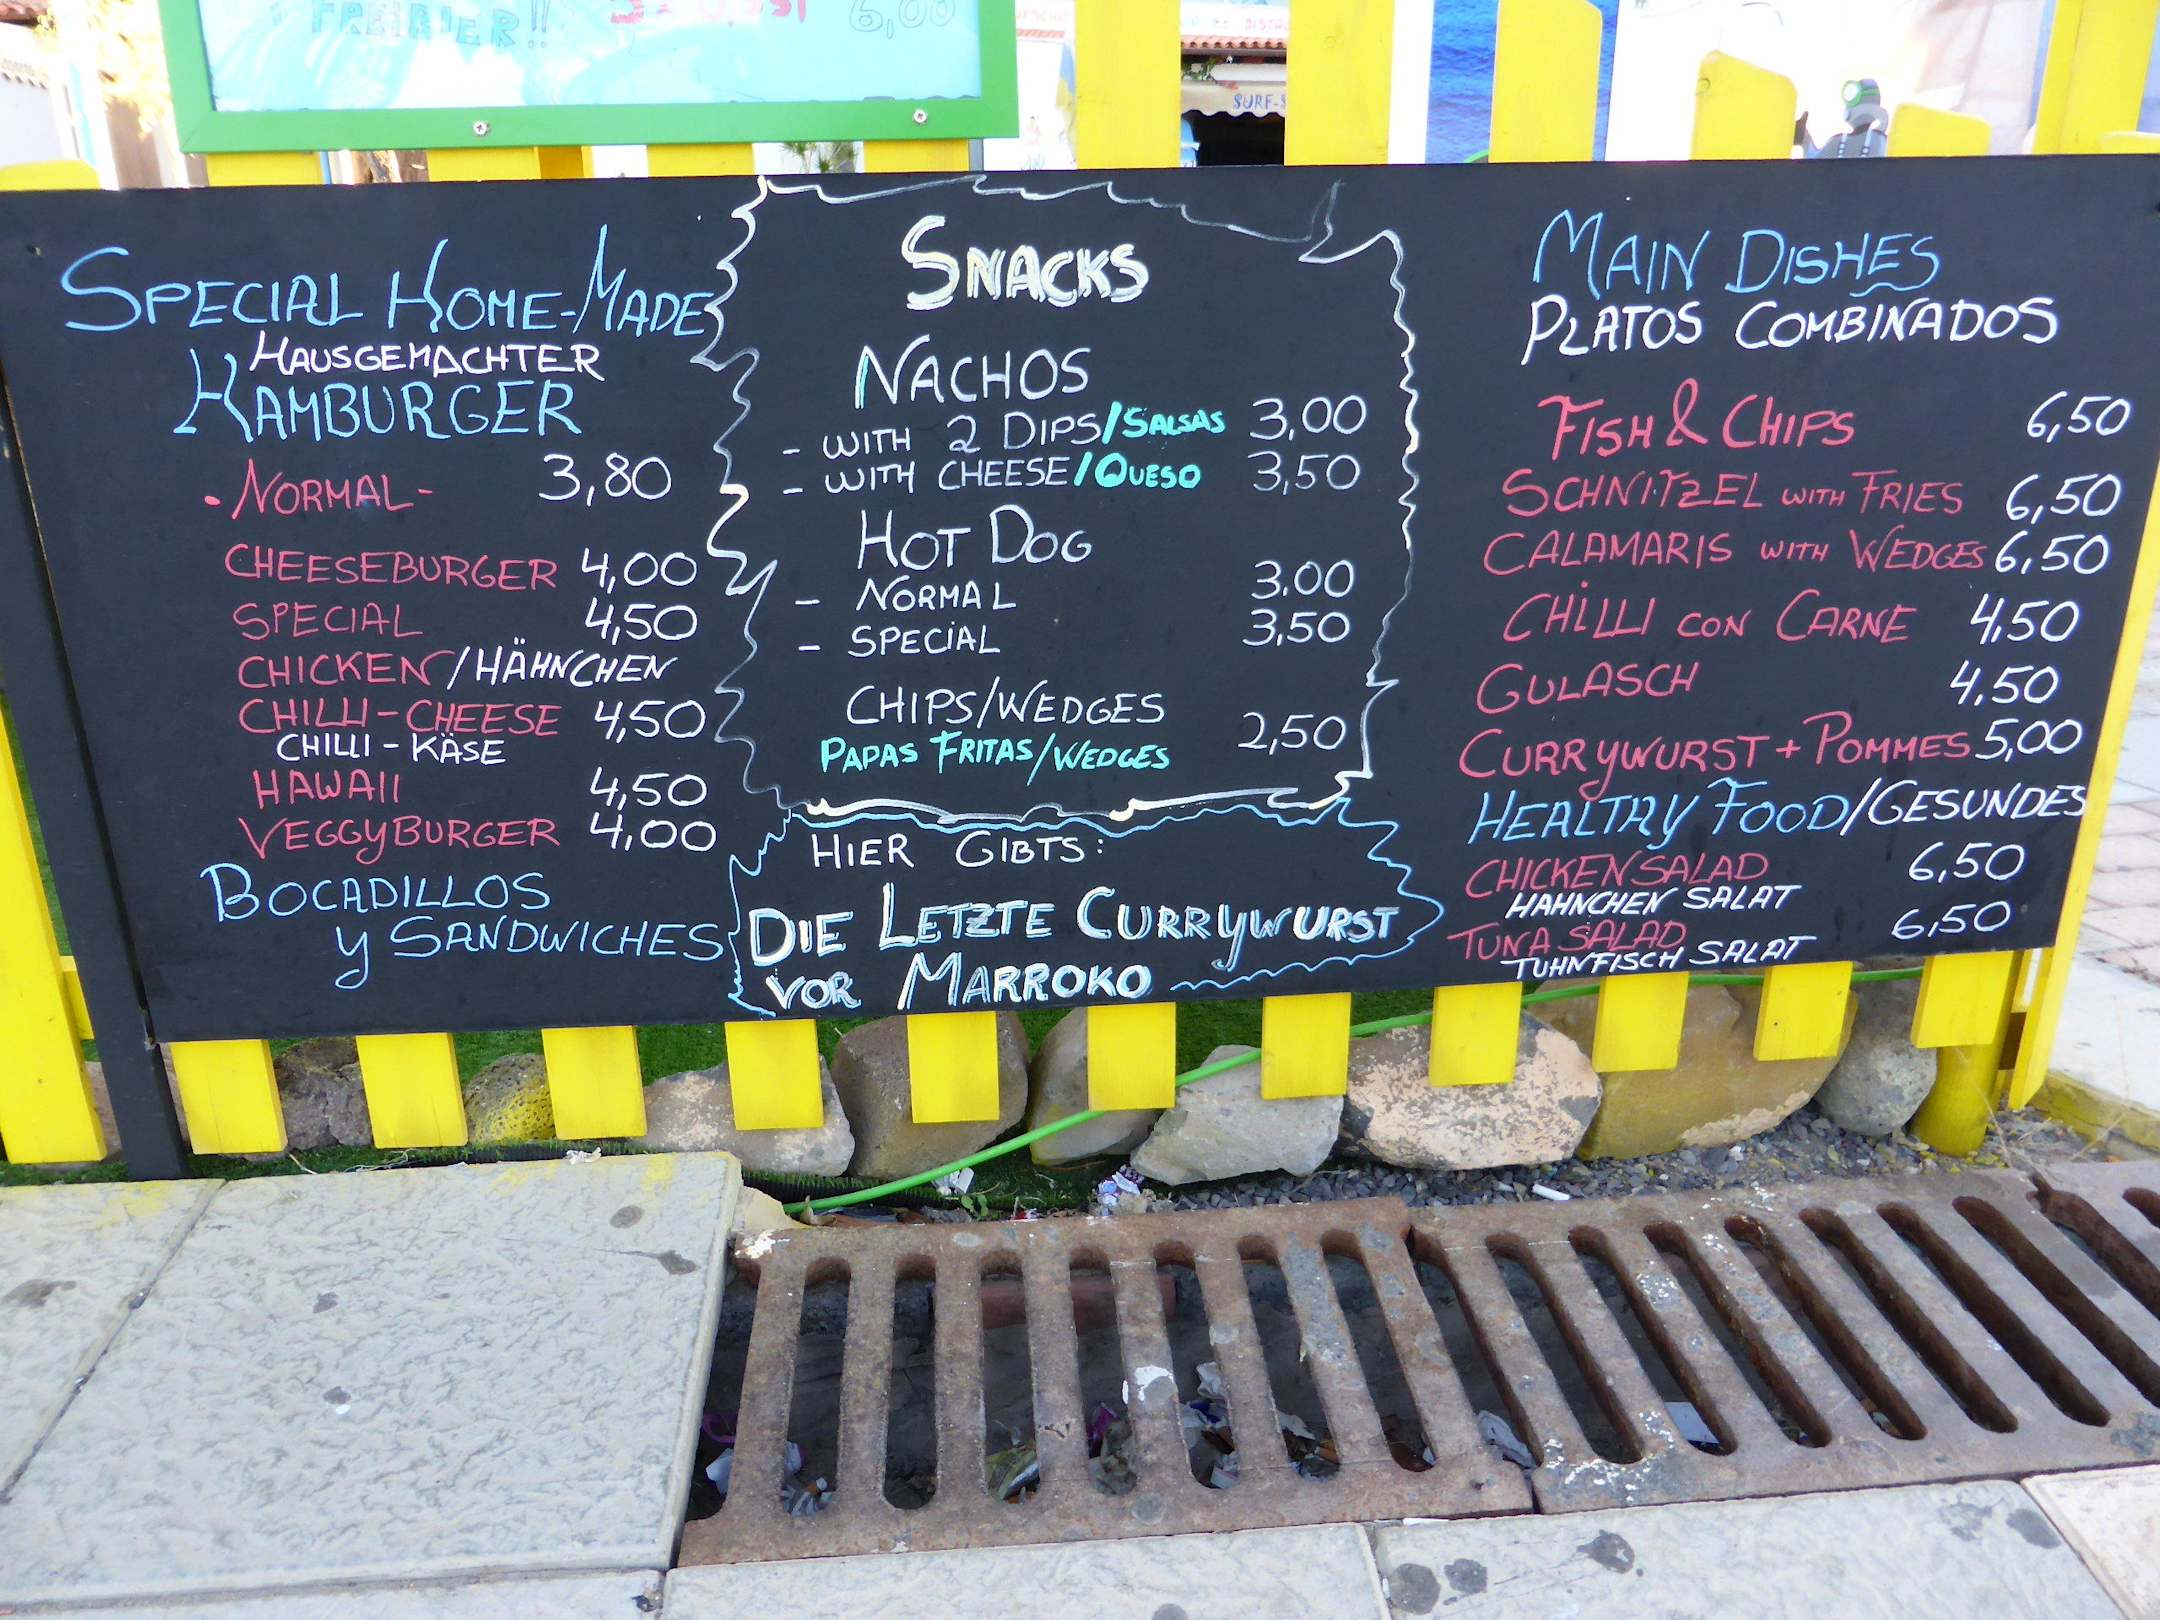 FREIBIER!!
6,00
SURF-S
SPECIAL HOME-MADE
HAUSGEMACHTER
HAMBURGER
• NORMAL - 3,80
CHEESEBURGER 4,00
SPECIAL 4,50
CHICKEN/HÄHNCHEN
CHILLI-CHEESE 4,50
CHILLI-KÄSE
HAWAII 4,50
VEGGYBURGER 4,00
BOCADILLOS
Y SANDWICHES
SNACKS
NACHOS
- WITH 2 DIPS/SALSAS 3,00
- WITH CHEESE/QUESO 3,50
HOT DOG
- NORMAL 3,00
- SPECIAL 3,50
CHIPS/WEDGES
PAPAS FRITAS/WEDGES 2,50
HIER GIBTS:
DIE LETZTE CURRYWURST
VOR MARROKO
MAIN DISHES
PLATOS COMBINADOS
FISH & CHIPS 6,50
SCHNITZEL WITH FRIES 6,50
CALAMARIS WITH WEDGES 6,50
CHILLI CON CARNE 4,50
GULASCH 4,50
CURRYWURST + POMMES 5,00
HEALTHY FOOD/GESUNDES
CHICKEN SALAD 6,50
HAHNCHEN SALAT
TUNA SALAD 6,50
TUHNFISCH SALAT